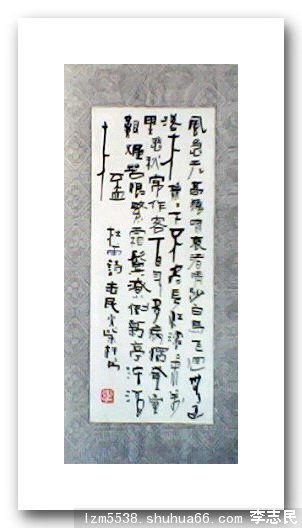 風急天高猿嘯哀渚清沙白鳥飛迴無邊
落木蕭蕭下不盡長江滾滾來萬
里悲秋常作客百年多病獨登臺
艱難苦恨繁霜鬢潦倒新停濁酒
杜甫詩志民
lzm5538.shuhua66.com 李志民